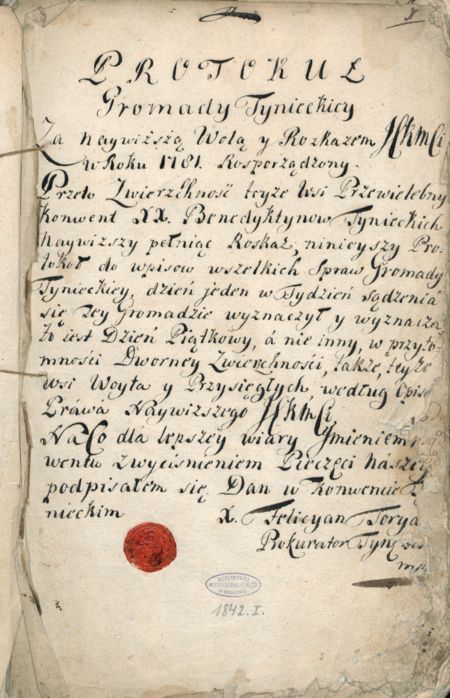 PROTOKUŁ
Gromady Tynieckiey
Za naywiższą Wolą y Rozkazem JCkmCi
w Roku 1781. Rosporządzony.
Przeto Zwierzchność teyże Wsi Przewielebny
Konwent XX. Benedyktynow Tynieckich
naywiższy pełniąc Roskaz, ninieyszy Pro-
tokoł do wpisow wszelkich Spraw Gromady
Tynieckiey, dzień jeden w Tydzień sądzenia
się tey Gromadzie wyznaczył y wyznacza
to iest Dzień Piątkowy, á nie inny, w przyto-
mności Dworney Zwierzchności, także, teyże
wsi Woyta y Przysięgłych według Opisu
Práwa Naywiższego JCkmCi
Na Co dla lepszey wiary Jmieniem
wentu z wyciśnieniem Pieczęci nászey
podpisałem się Dan w Konwencie
nieckim X. Felicyan Torya
Prokurator Tyn
1842. I.